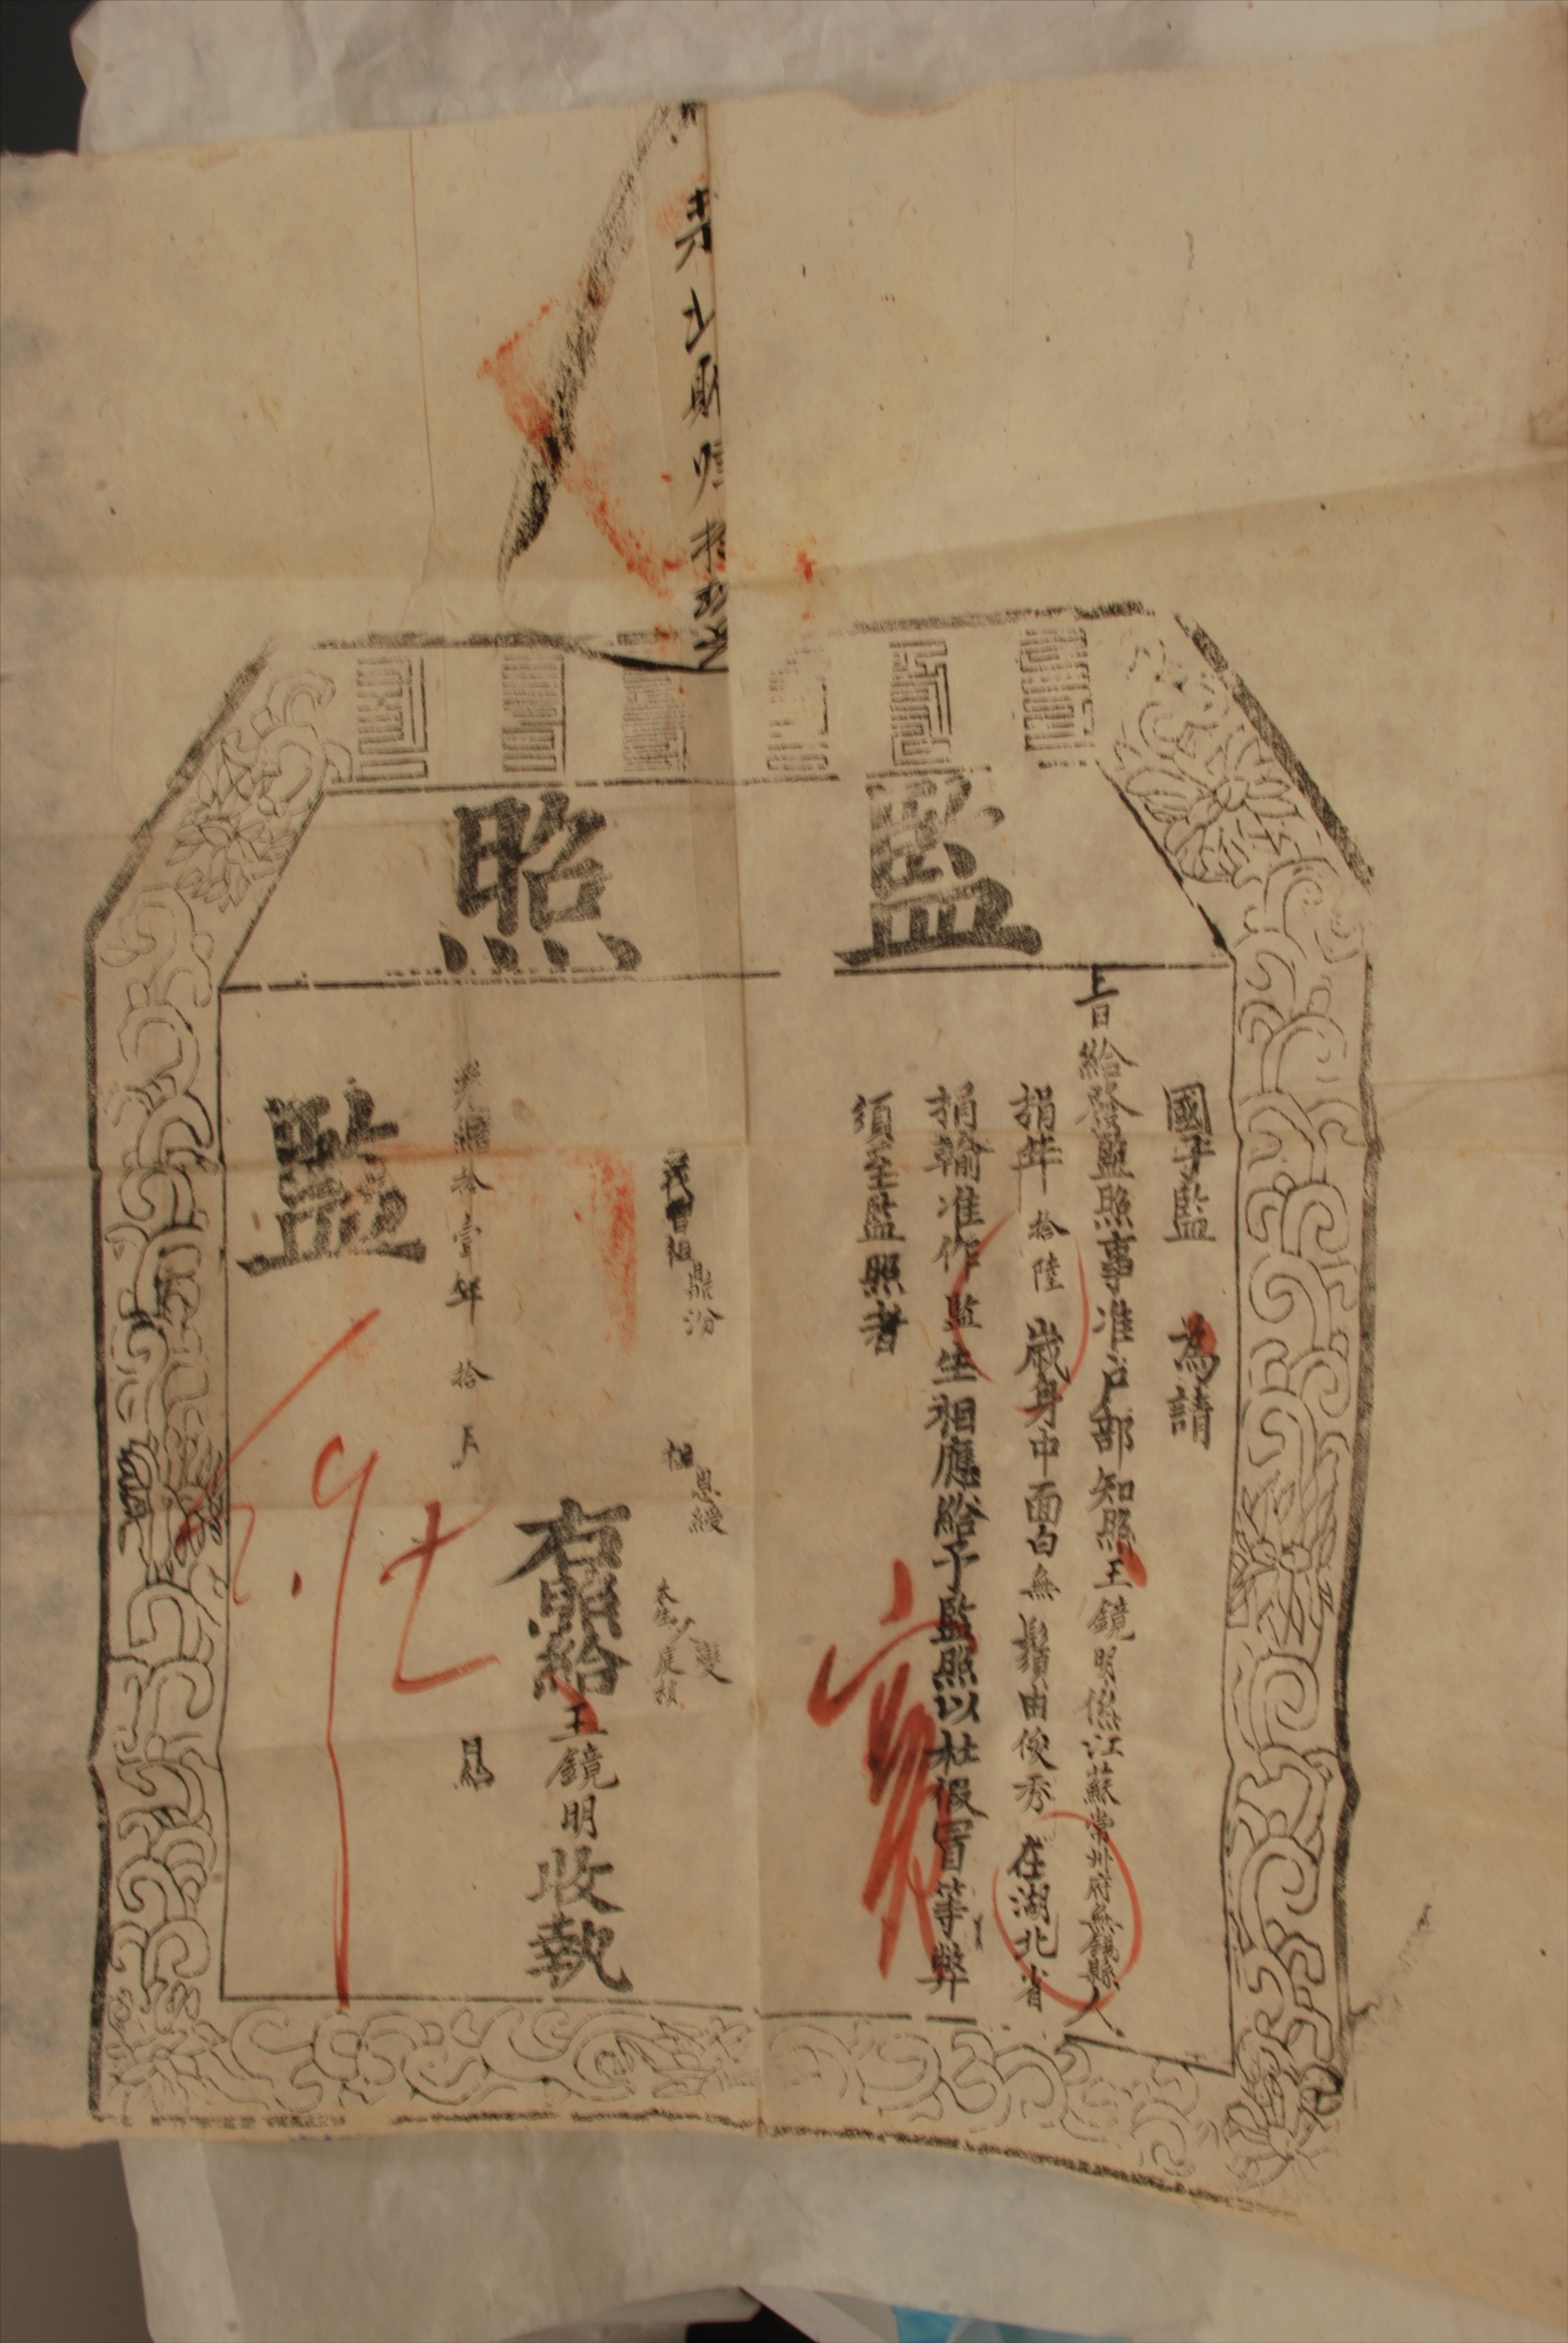 監照
國子監 為請
旨給發監照事准戶部知照王鏡明係江蘇常州府無錫縣人
捐年拾陸歲身中面白無鬚由俊秀在湖北省
捐輸准作監生相應給予監照以杜假冒等弊
須至監照者
曾祖鼎汾 祖恩綬 父
右照給王鏡明收執
光緒拾壹年拾月
監